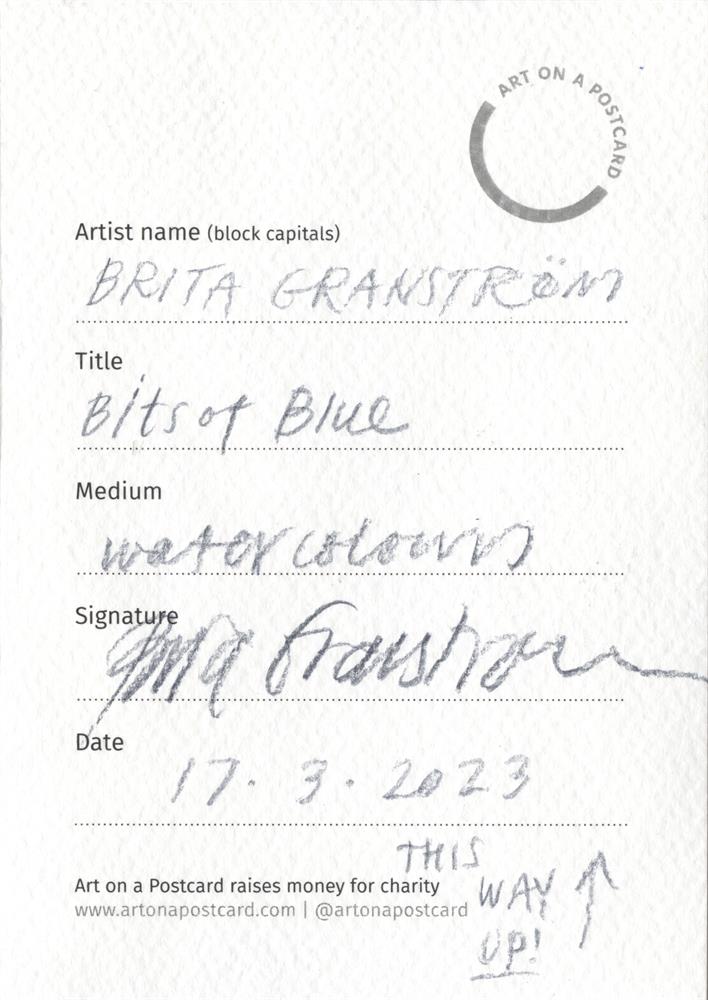 ART ON A POSTCARD
Artist name (block capitals)
BRITA GRANSTRÖM
Title
Bits of Blue
Medium
watercolours
Signature
Brita Granstrom
Date
17. 3. 2023
THIS
WAY ↑
UP!
Art on a Postcard raises money for charity
www.artonapostcard.com | @artonapostcard